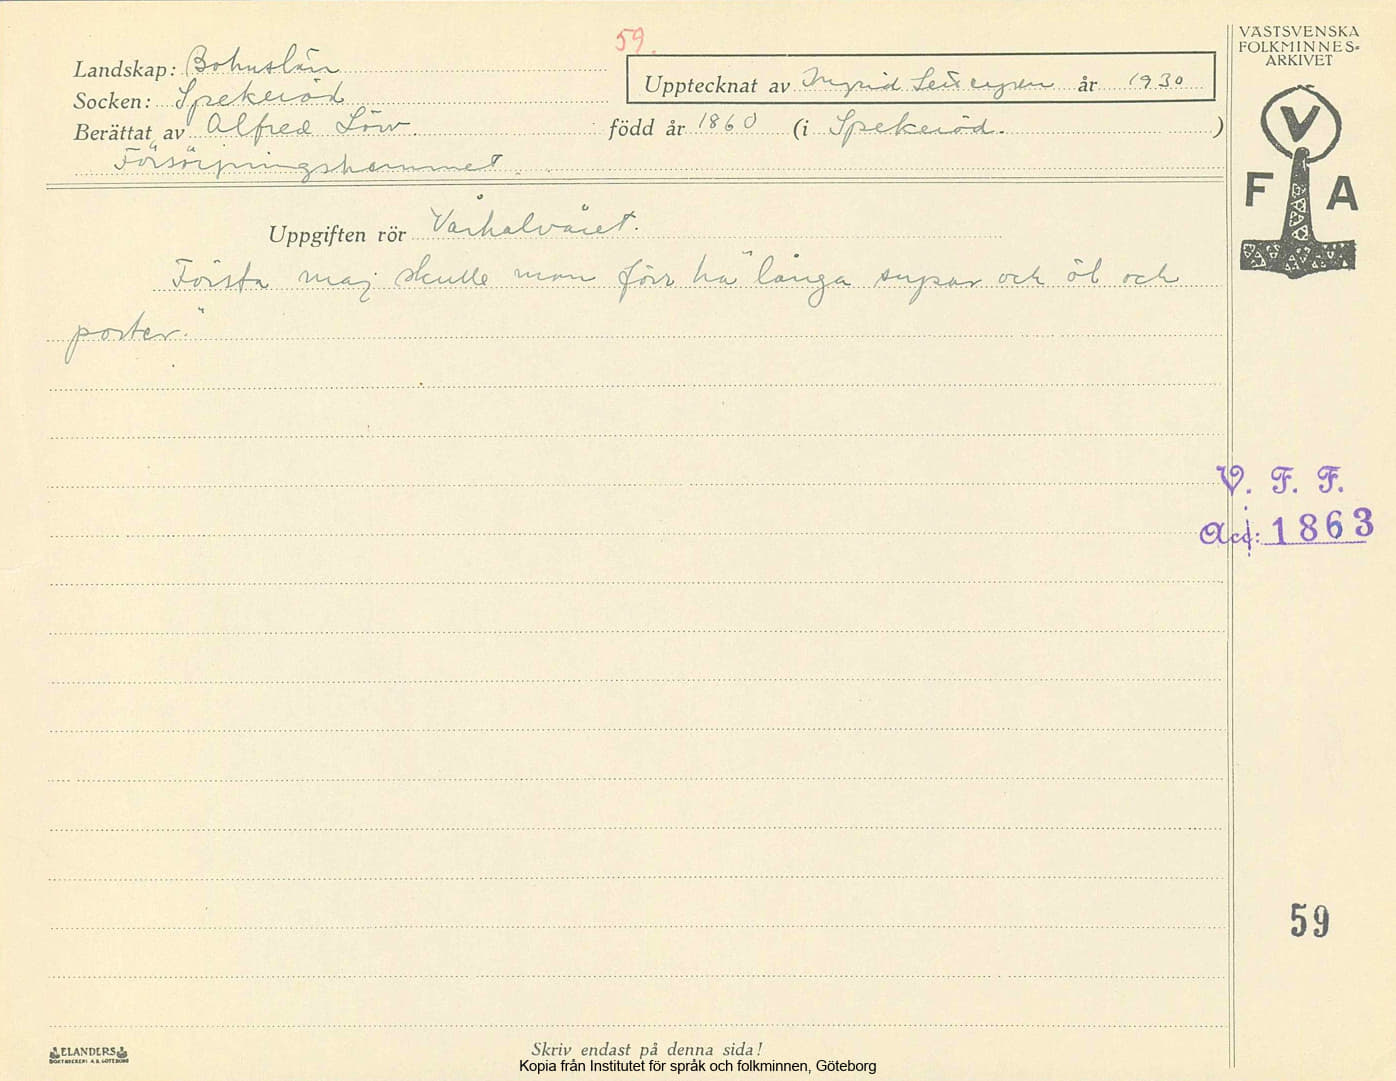 59.
VÄSTSVENSKA
FOLKMINNES-
ARKIVET
Landskap: Bohuslän
Upptecknat av Ingrid år 1930
Socken: Spekeröd
Berättat av Alfred Löw. född år 1860 (i Spekeröd. )
Försörjningshemmet.
V
F A
Uppgiften rör Vårhalvåret.
Första maj skulle man förr ha "långa supar och öl och
porter."
V. F. F.
Acc: 1863
59
ELANDERS
BOKTRYCKERI A.B. GÖTEBORG
Skriv endast på denna sida!
Kopia från Institutet för språk och folkminnen, Göteborg